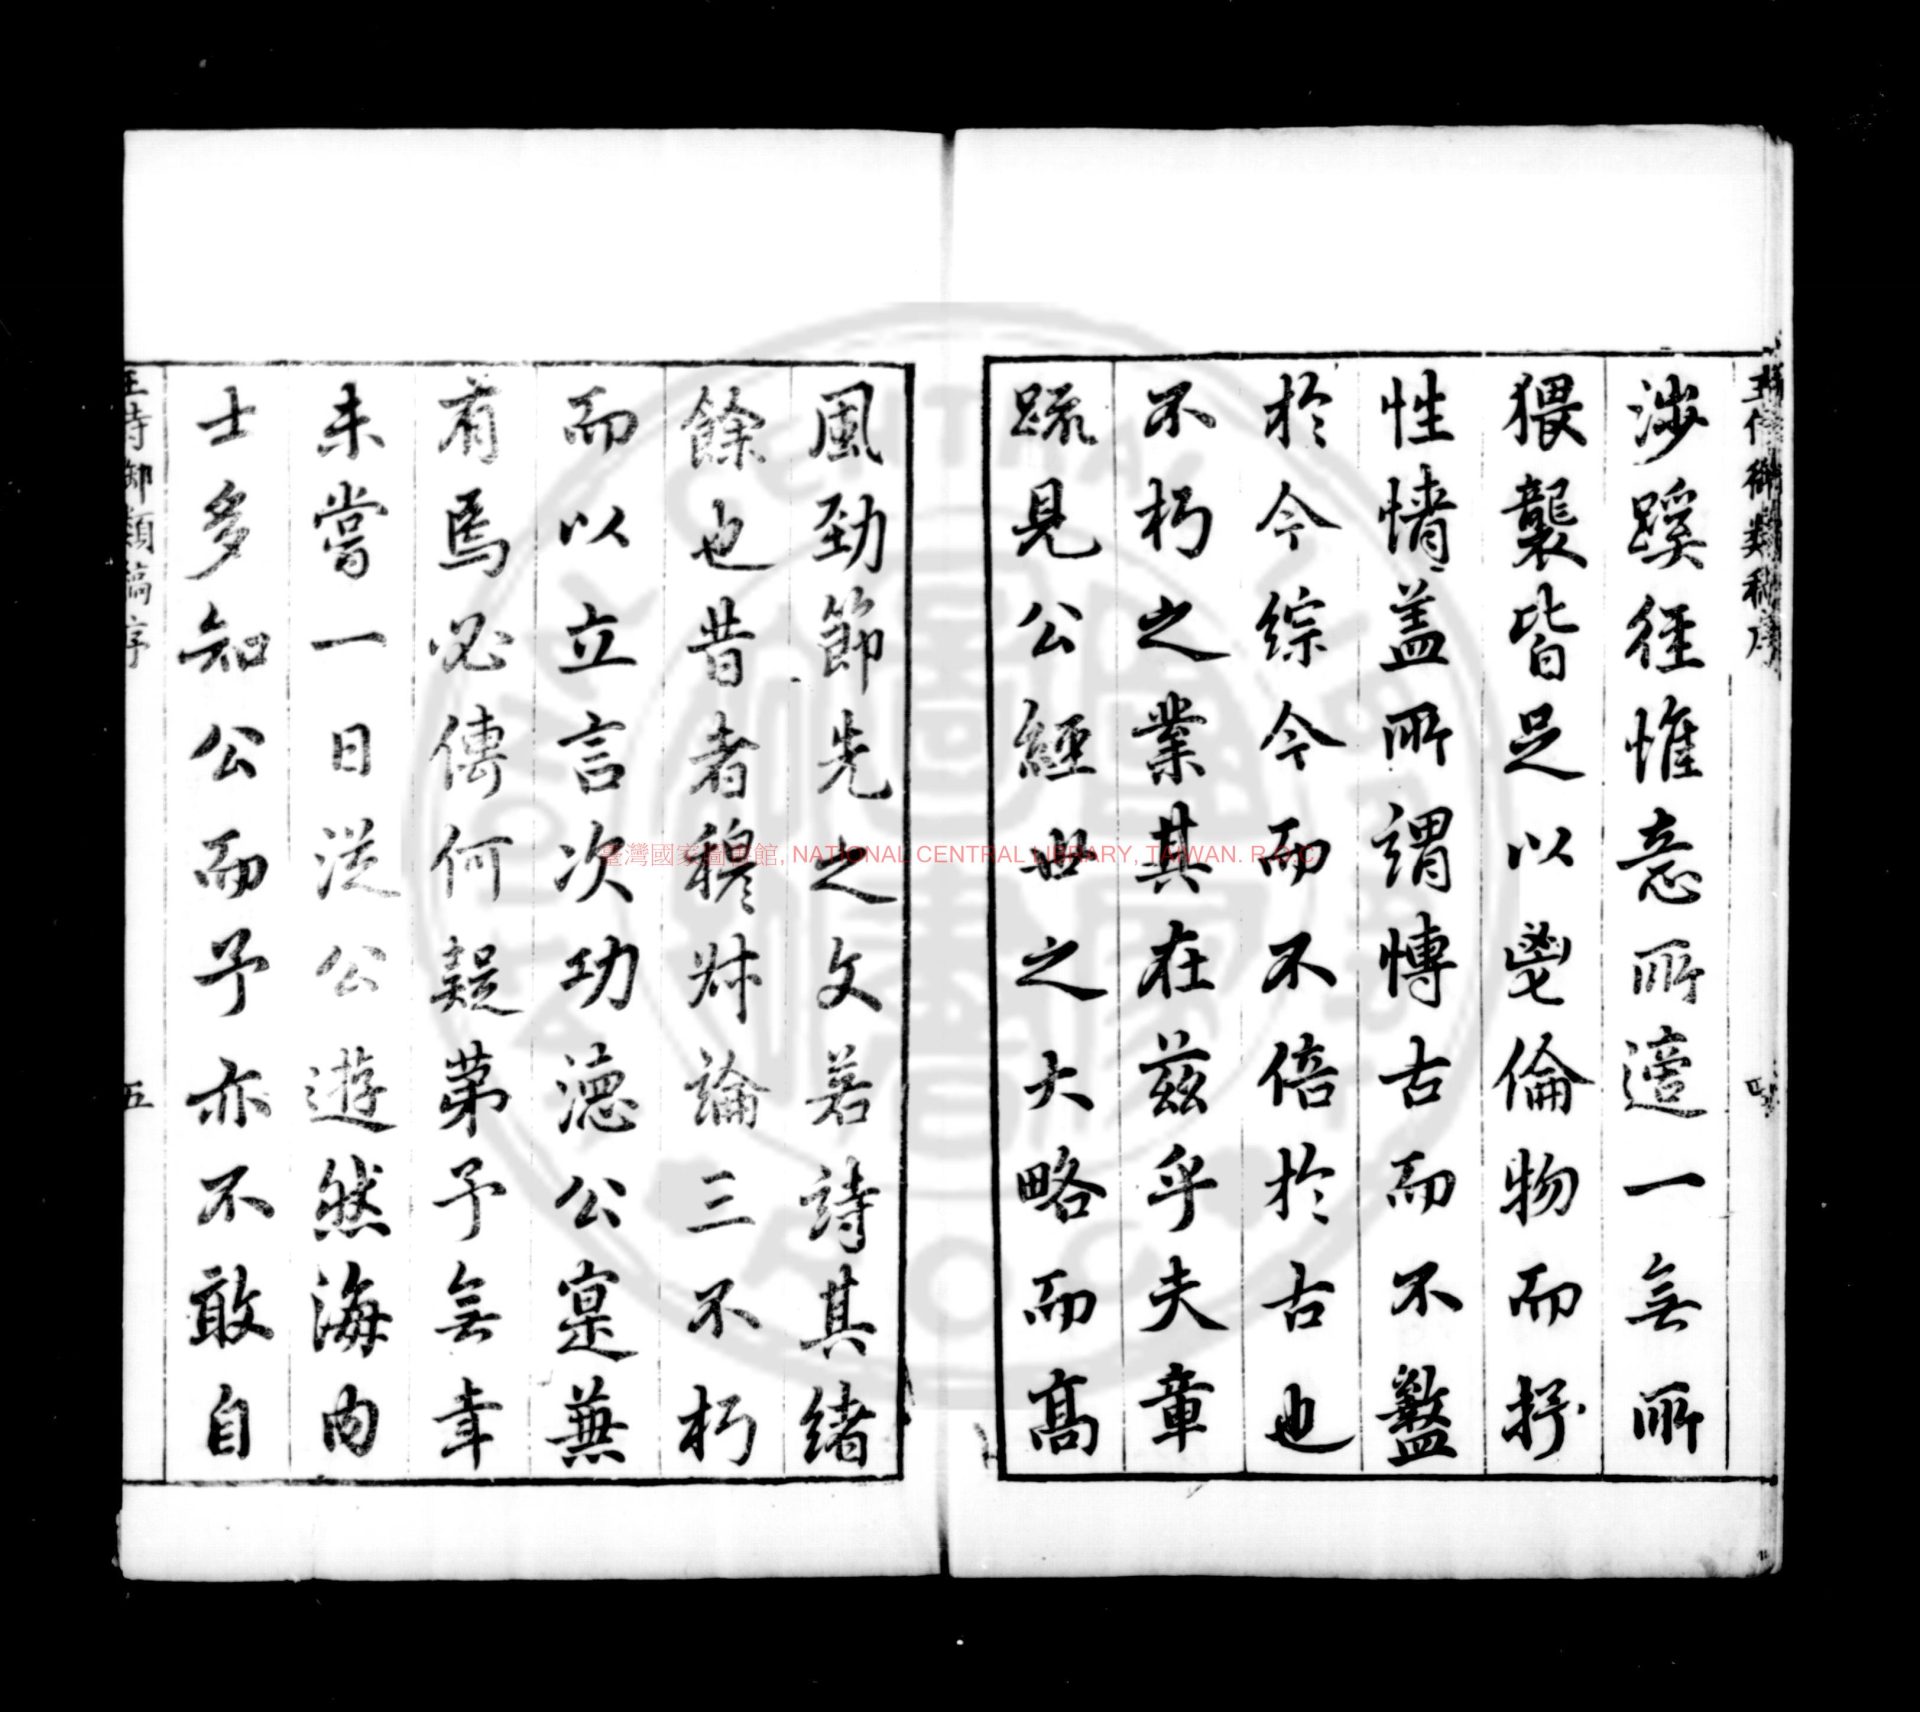 王侍御類稿序
四
涉蹊徑惟意所適一無所
猥襲皆足以鬯倫物而抒
性情蓋所謂博古而不盭
於今綜今而不倍於古也
不朽之業其在茲乎夫章
疏見公經世之大略而高
風勁節先之文若詩其緒
餘也昔者穆叔論三不朽
而以立言次功德公寔兼
有焉必傳何疑第予無幸
未嘗一日從公遊然海內
士多知公而予亦不敢自
王侍御類稿序
五
臺灣國家圖書館, NATIONAL CENTRAL LIBRARY, TAIWAN. R.O.C